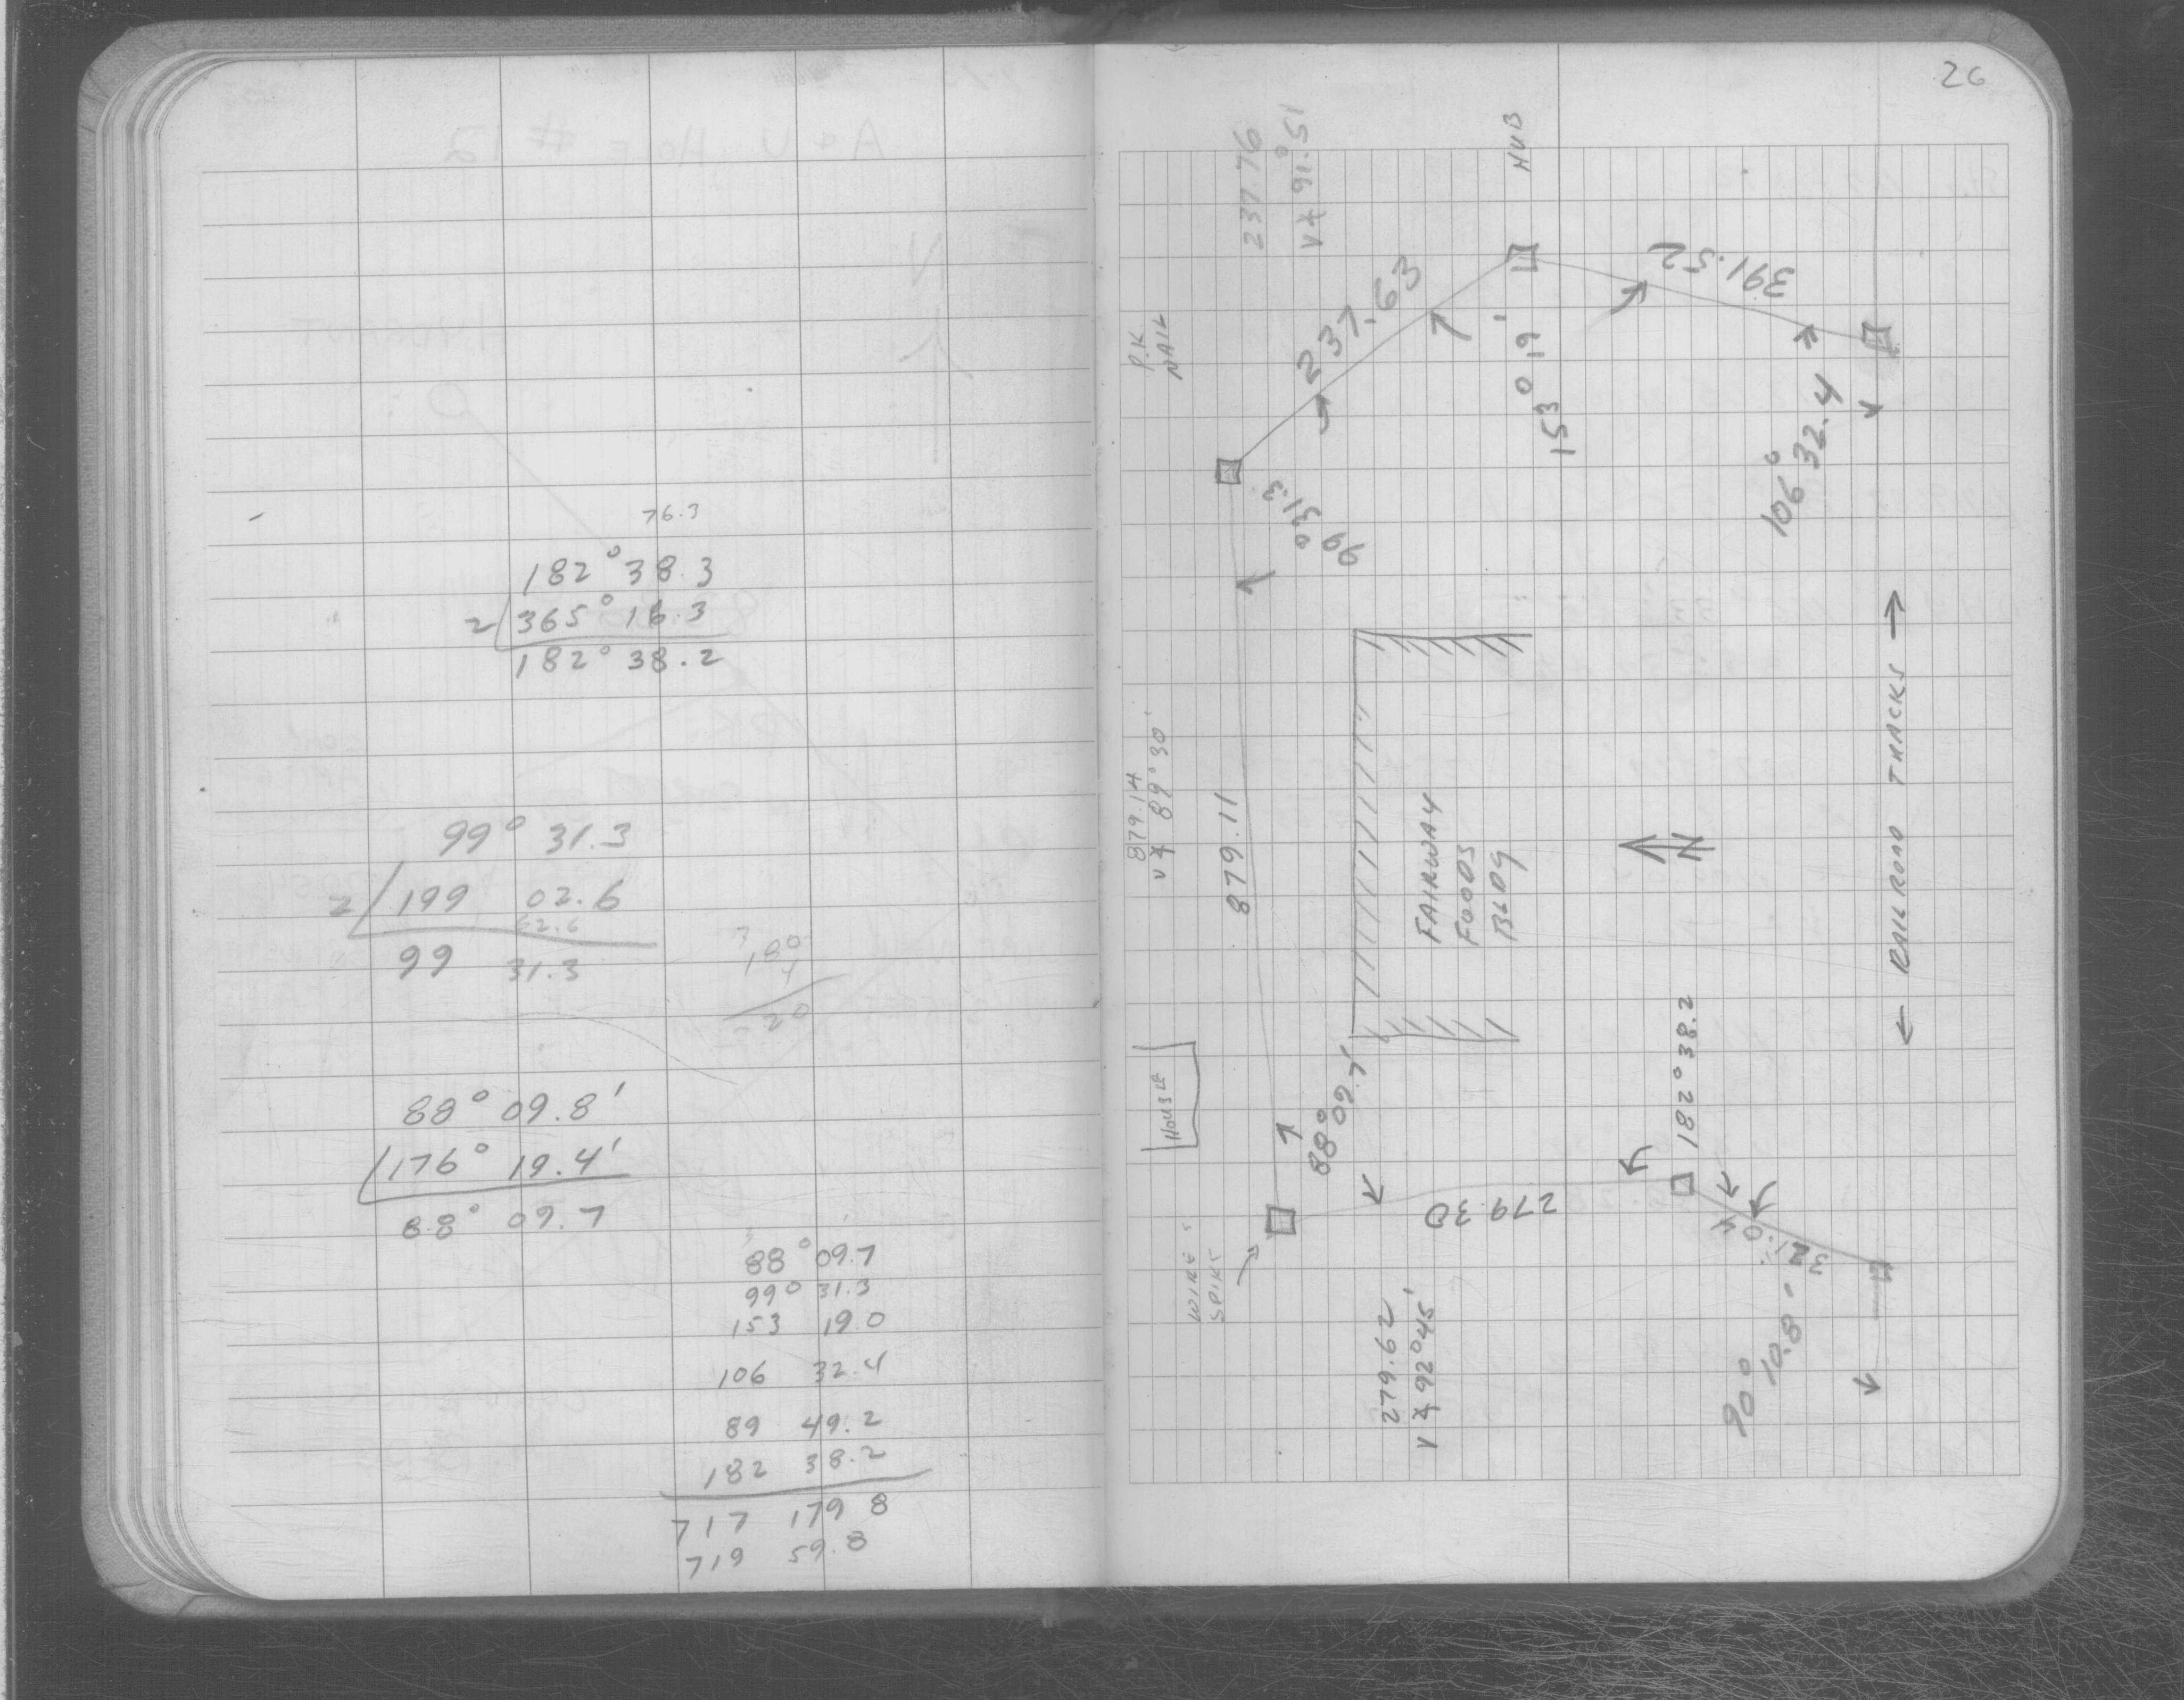 76.3
182° 38.3
2 365° 16.3
182° 38.2
99° 31.3
2 199 02.6
62.6
99 31.3
180
4
20
88° 09.8'
176° 19.4'
88° 09.7
88° 09.7
99° 31.3
153 19.0
106 32.4
89 49.2
182 38.2
717 179 8
719 59.8
26
237.76
V∡ 91° 51
HUB
P.K
NAIL
237.63
391.52
153° 19'
106° 32.4
99° 31.3
879.14
V∡ 89° 30'
879.11
FAIRWAY
FOODS
BLDG
N
← RAILROAD TRACKS →
HOUSE
88° 09.7'
182° 38.2
279.30
WIRE
SPIKE
279.62
V∡ 92° 45'
321.04
90° 10.8